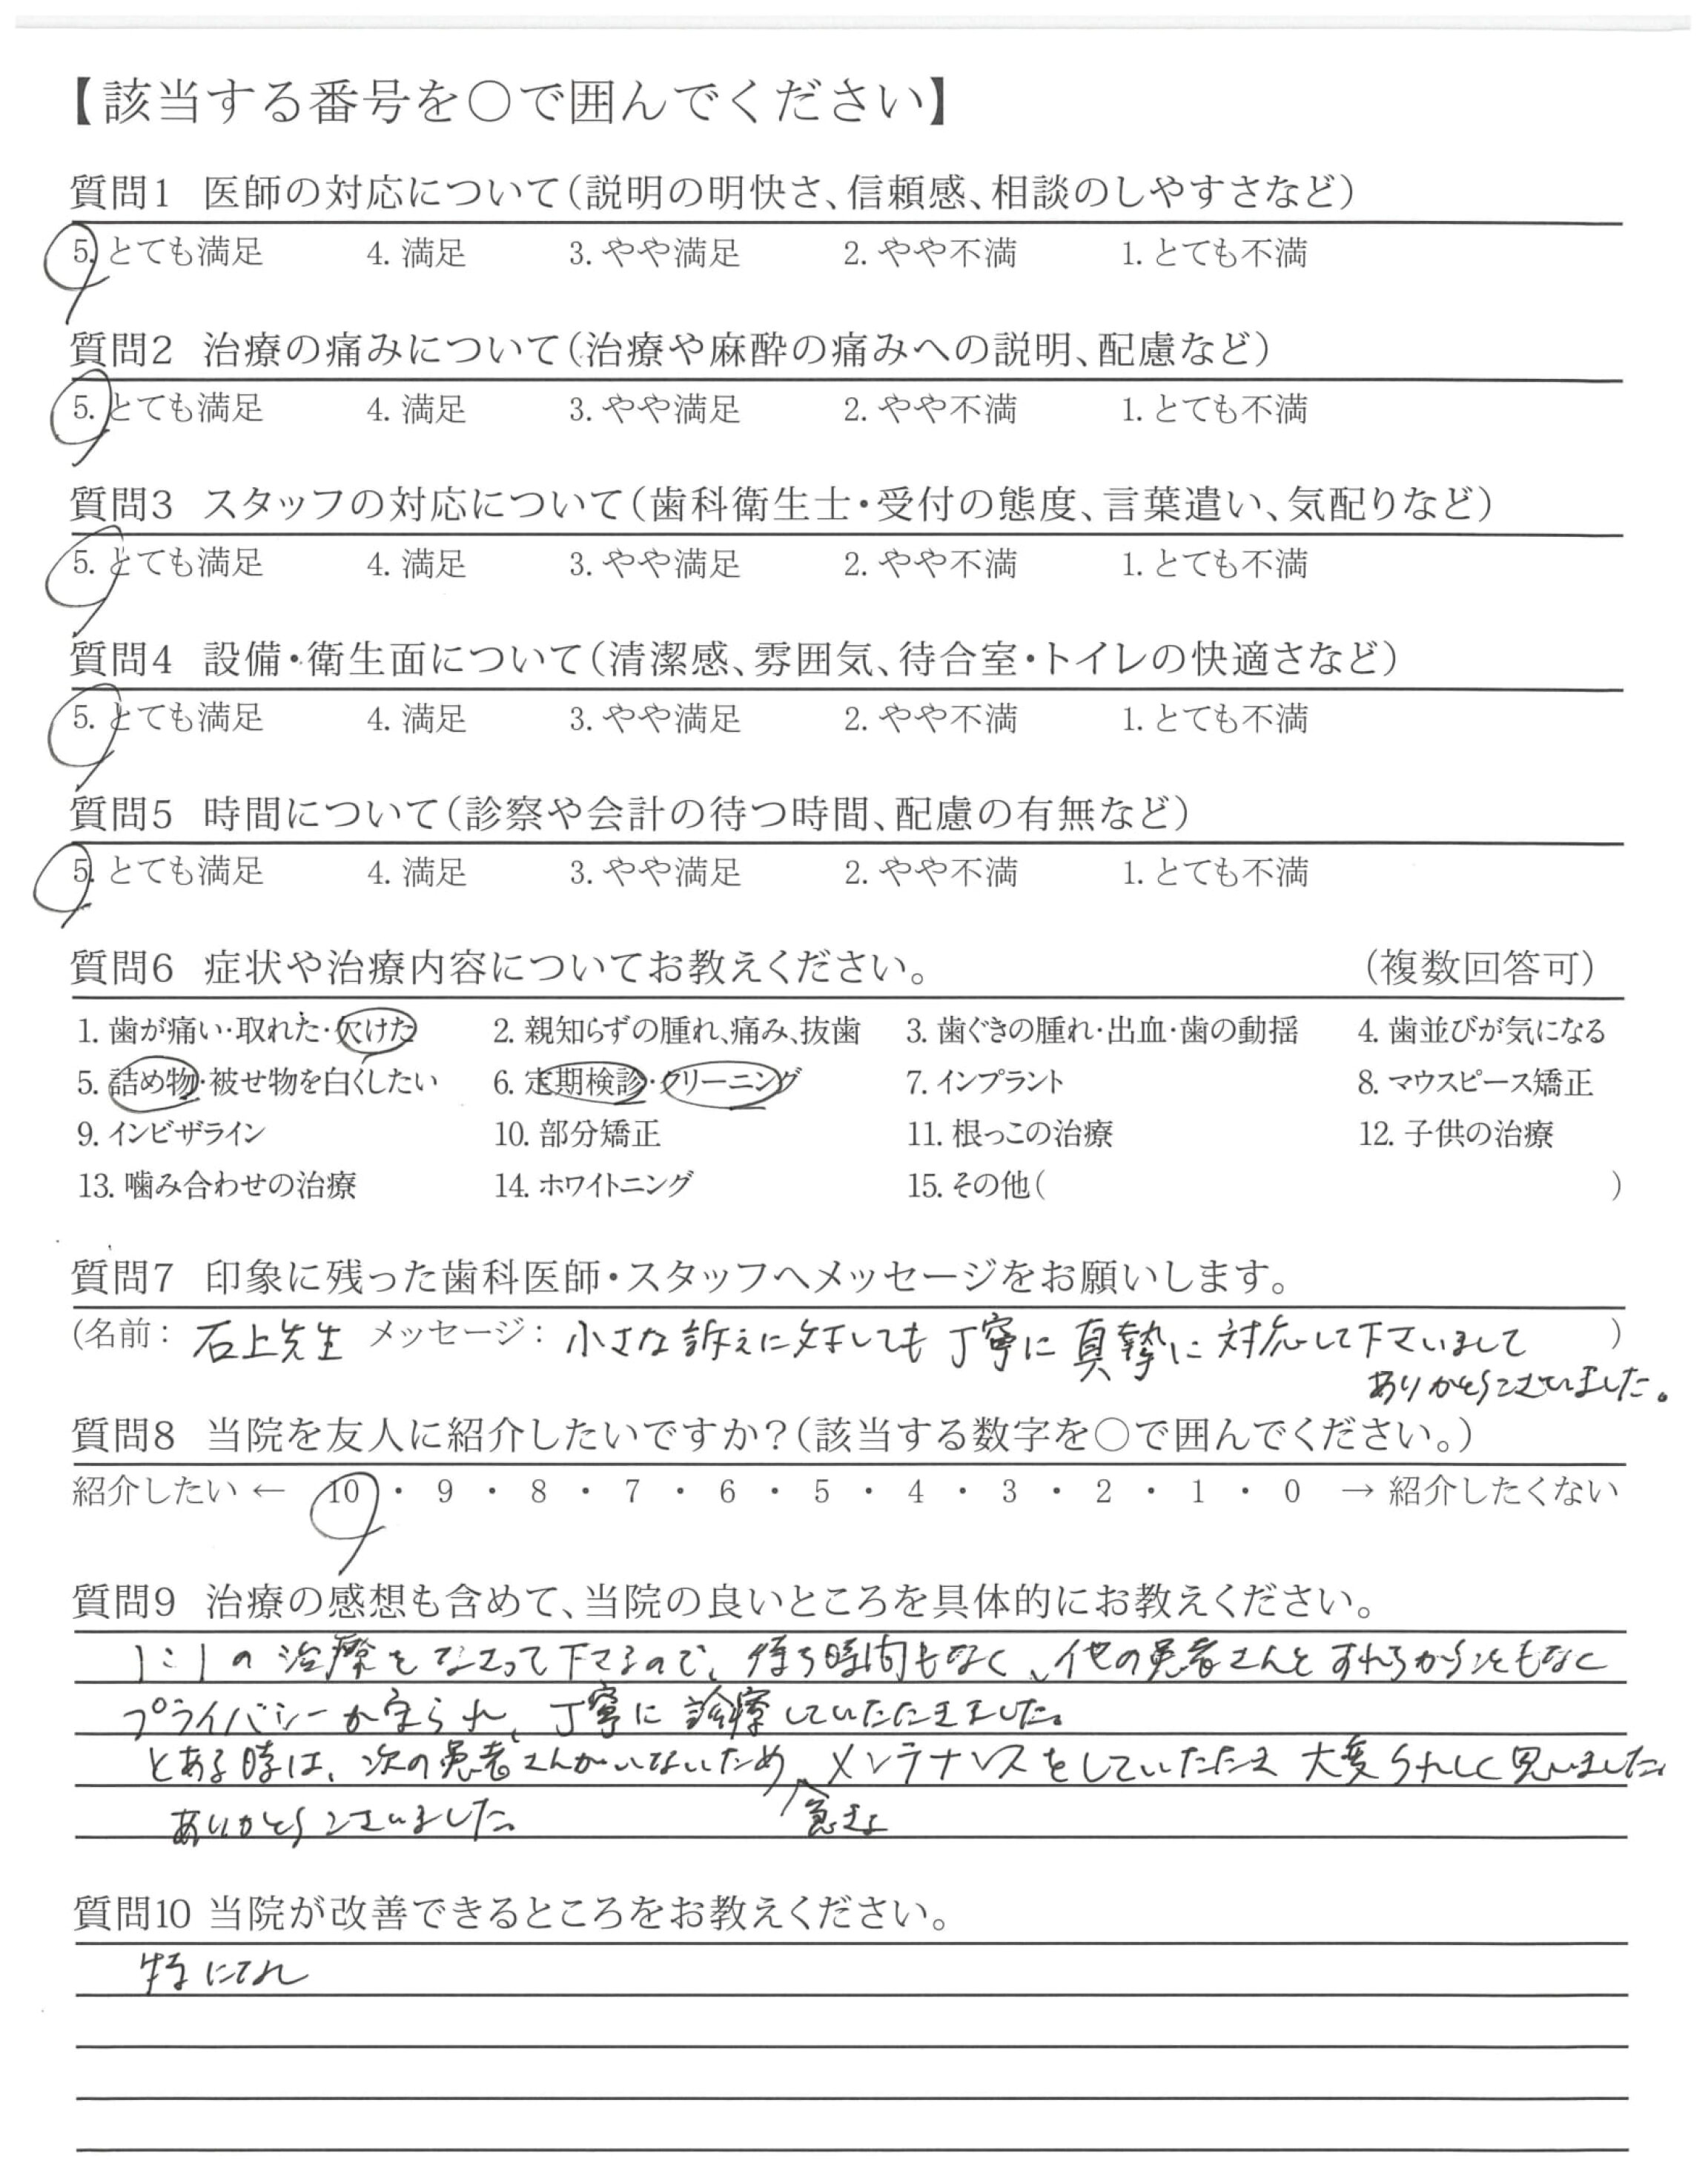 【該当する番号を○で囲んでください】
質問1 医師の対応について(説明の明快さ、信頼感、相談のしやすさなど)
5. とても満足 4. 満足 3. やや満足 2. やや不満 1. とても不満
質問2 治療の痛みについて(治療や麻酔の痛みへの説明、配慮など)
5. とても満足 4. 満足 3. やや満足 2. やや不満 1. とても不満
質問3 スタッフの対応について(歯科衛生士・受付の態度、言葉遣い、気配りなど)
5. とても満足 4. 満足 3. やや満足 2. やや不満 1. とても不満
質問4 設備・衛生面について(清潔感、雰囲気、待合室・トイレの快適さなど)
5. とても満足 4. 満足 3. やや満足 2. やや不満 1. とても不満
質問5 時間について(診察や会計の待つ時間、配慮の有無など)
5. とても満足 4. 満足 3. やや満足 2. やや不満 1. とても不満
質問6 症状や治療内容についてお教えください。 (複数回答可)
1. 歯が痛い・取れた・欠けた 2. 親知らずの腫れ、痛み、抜歯 3. 歯ぐきの腫れ・出血・歯の動揺 4. 歯並びが気になる
5. 詰め物・被せ物を白くしたい 6. 定期検診・クリーニング 7. インプラント 8. マウスピース矯正
9. インビザライン 10. 部分矯正 11. 根っこの治療 12. 子供の治療
13. 噛み合わせの治療 14. ホワイトニング 15. その他( )
質問7 印象に残った歯科医師・スタッフへメッセージをお願いします。
(名前: 石上先生 メッセージ: 小さな訴えに対しても丁寧に真摯に対応して下さいまして )
ありがとうございました。
質問8 当院を友人に紹介したいですか?(該当する数字を○で囲んでください。)
紹介したい ← 10 ・ 9 ・ 8 ・ 7 ・ 6 ・ 5 ・ 4 ・ 3 ・ 2 ・ 1 ・ 0 → 紹介したくない
質問9 治療の感想も含めて、当院の良いところを具体的にお教えください。
1:1の治療をなさって下さるので、待ち時間もなく、他の患者さんとすれちがうこともなく
プライバシーが守られ、丁寧に診療していただきました。
とある時は、次の患者さんがいないため、メンテナンスをしていただき大変うれしく思いました。
ありがとうございました。 急きょ
質問10 当院が改善できるところをお教えください。
特になし